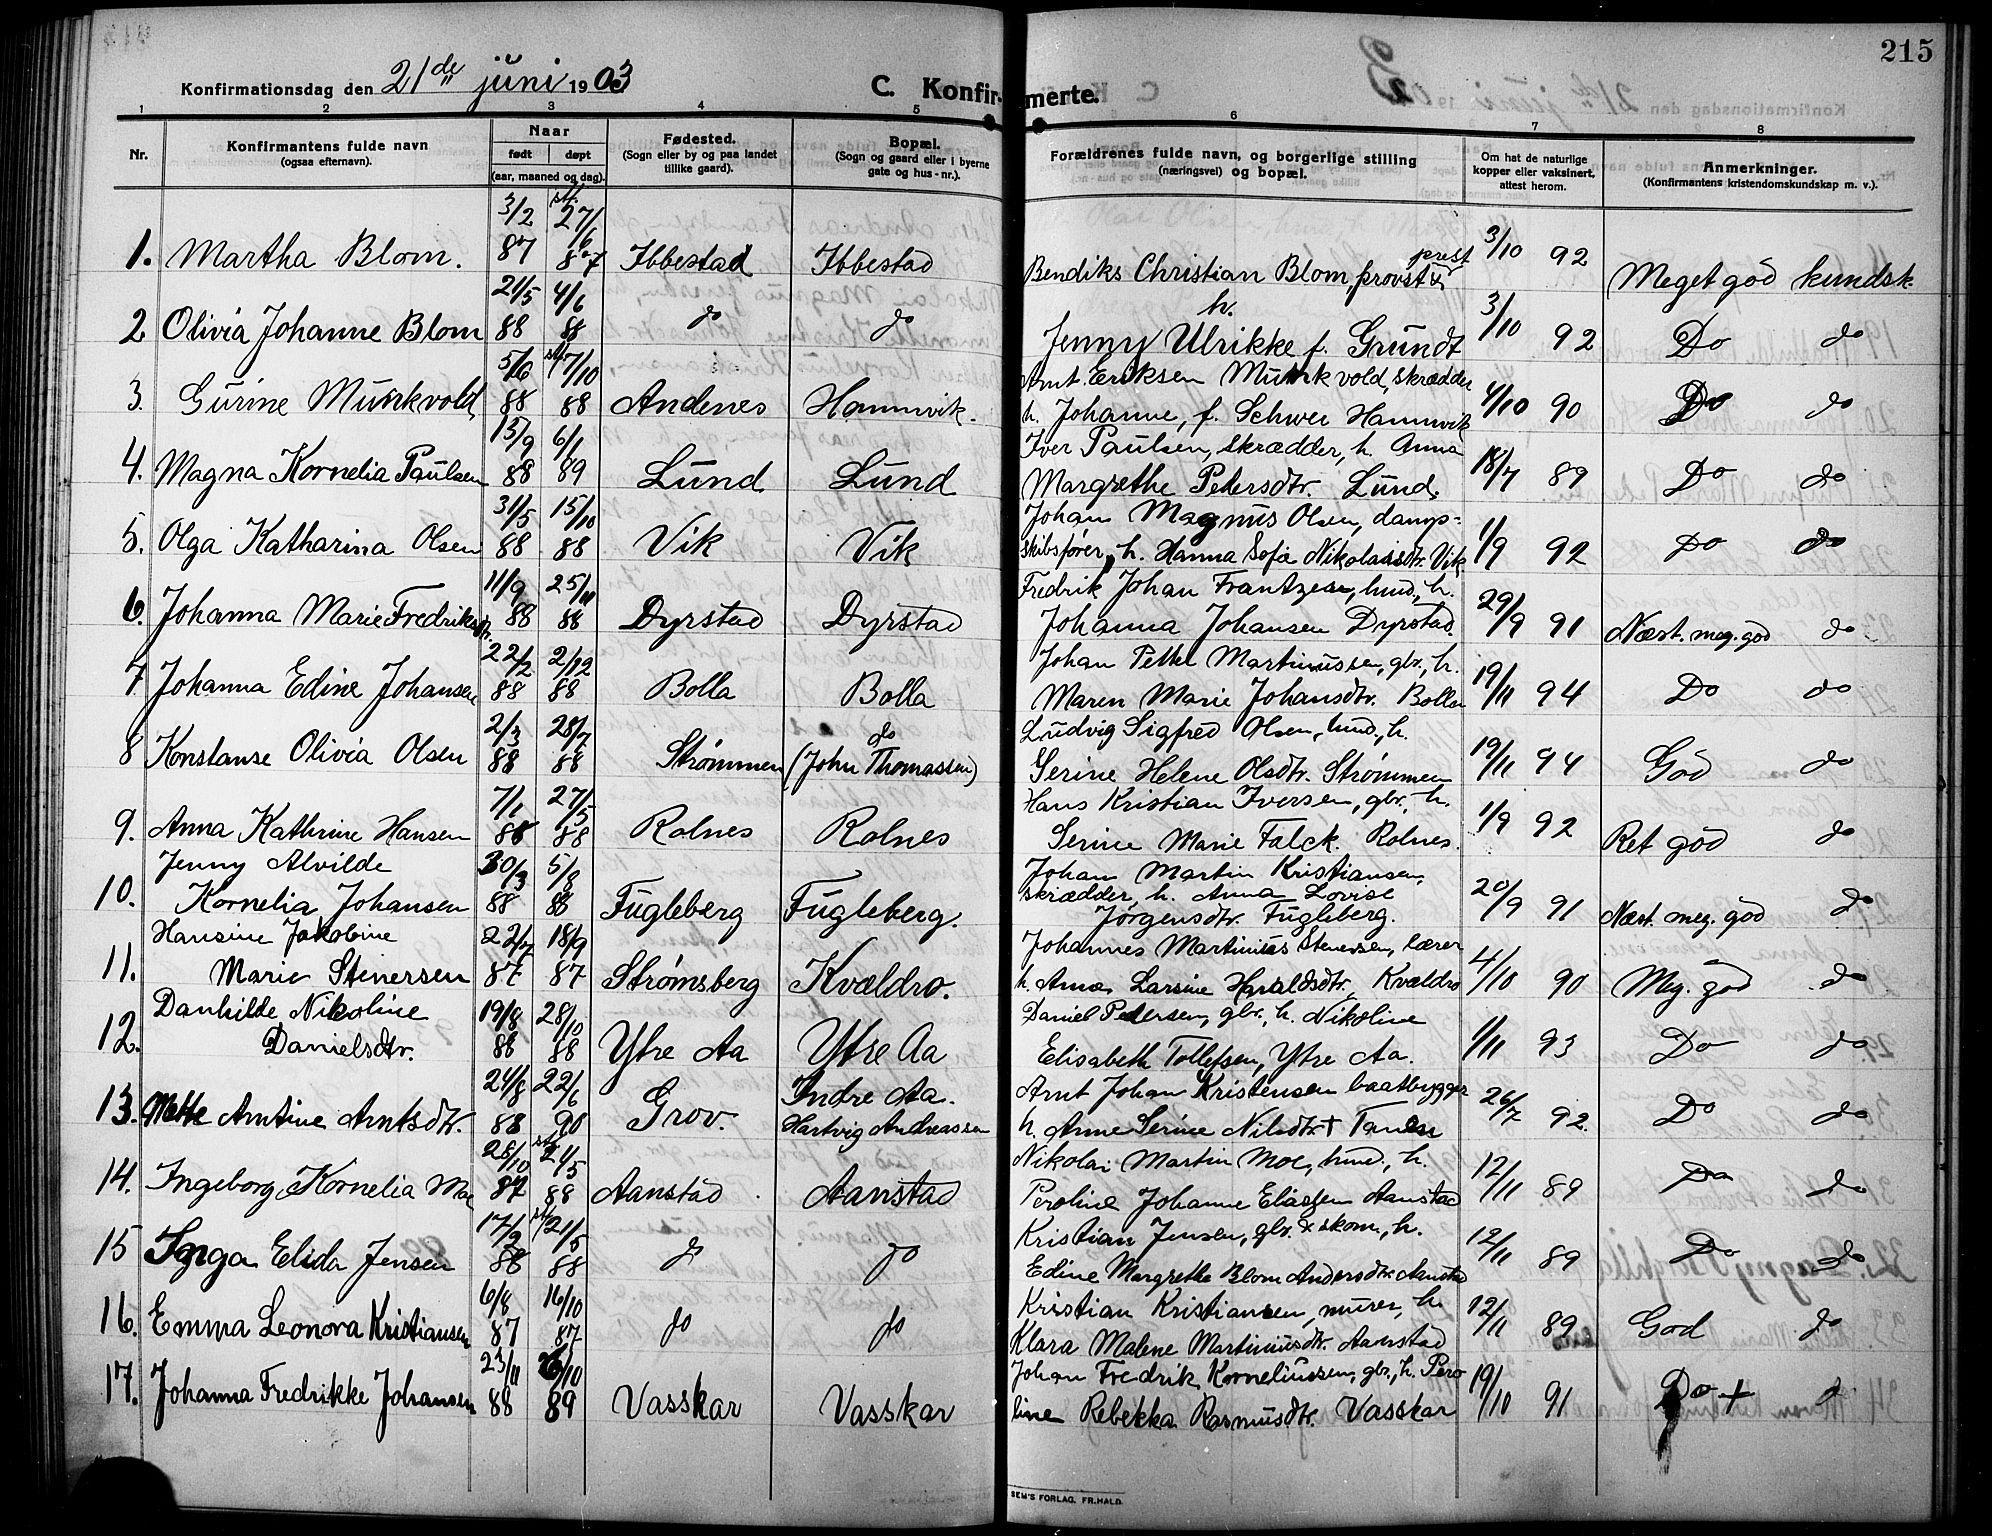 215
Konfirmationsdag den 21de juni 1903
C. Konfirmerte.
1 2 3 4 5 6 7 8
Nr.
Konfirmantens fulde navn
(ogsaa efternavn).
Naar
født døpt
(aar, maaned og dag).
Fødested.
(Sogn eller by og paa landet
tillike gaard).
Bopæl.
(Sogn og gaard eller i byerne
gate og hus-nr.).
Forældrenes fulde navn, og borgerlige stilling
(næringsvei) og bopæl.
Om hat de naturlige
kopper eller vaksinert,
attest herom.
Anmerkninger.
(Konfirmantens kristendomskundskap m. v.).
1. Martha Blom. 3/2 87 27/16 87 Ibbestad Ibbestad Bendiks Christian Blom, provst & prest 3/10 92 Meget god kundsk.
h.
2 Olivia Johanne Blom 21/5 88 4/6 88 do do Jenny Ulrikke f. Grundt 3/10 92 Do do
3. Gurine Munkvold 5/6 88 17/10 88 Andenes Hamnvik. Arnt Eriksen Munkvold, skrædder
h. Johanne, f. Schwer Hamnvik 4/10 90 Do do
4. Magna Kornelia Paulsen 13/9 88 6/1 89 Lund Lund Iver Paulsen, skrædder, h. Anna
Margrethe Petersdtr. Lund. 18/7 89 Do do
5. Olga Katharina Olsen 31/5 88 15/10 88 Vik Vik Johan Magnus Olsen, damp-
skibsfører, h. Hanna Sofie Nikolaisdtr. Vik 1/9 92 Do do
6. Johanna Marie Fredriksdtr. 11/9 88 25/11 88 Dyrstad Dyrstad Fredrik Johan Frantzen, husd., h.
Johanna Johansen Dyrstad. 29/9 91 Næst. meg. god do
7 Johanna Edine Johansen 22/2 88 2/12 88 Bolla Bolla Johan Petter Martinussen, gbr., h.
Maren Marie Johansdtr. Bolla 19/11 94 Do do
8 Konstanse Olivia Olsen 2/3 88 28/7 88 Strømmen do
(John Thomassen) Ludvig Sigfred Olsen, husd., h.
Serine Helene Olsdtr. Strømmen 19/11 94 God do
9. Anna Kathrine Hansen 7/1 88 27/5 88 Rolnes Rolnes Hans Kristian Iversen, gbr., h.
Serine Marie Falck. Rolnes. 1/9 92 Ret god do
10. Jenny Alvilde
Kornelia Johansen 30/3 88 5/8 88 Fugleberg Fugleberg. Johan Martin Kristiansen,
skrædder, h. Anna Lovise
Jørgensdtr. Fugleberg. 20/9 91 Næst. meg. god do
11. Hansine Jakobine
Marie Stenersen 22/7 87 18/9 87 Strømsberg Kvældro. Johannes Martinius Stenersen, lærer
h. Anne Larsine Haraldsdtr., Kvældro 4/10 90 Meg. god do
12. Danhilde Nikoline
Danielsdtr. 19/8 88 28/10 88 Ytre Aa Ytre Aa Daniel Pedersen, gbr., h. Nikoline
Elisabeth Tollefsen, Ytre Aa. 1/11 93 Do do
13. Mette Arntine Arntsdtr. 24/8 88 22/6 90 Grov. Indre Aa.
Hartvig Andreassen Arnt Johan Kristensen baatbygger
h. Anne Serine Nilsdtr. 26/7 92. Do do
14. Ingeborg Kornelia Moe 26/10 87 24/5 88 Aanstad Aanstad Nikolai Martin Moe, husd., h.
Peroline Johanne Eliassen Aanstad 12/11 89 Do do
15 Inga Elida Jensen 17/2 88 21/5 88 do do Kristian Jensen, gbr. & skom., h.
Edine Margrethe Blom Andersdtr. Aanstad 12/11 89 Do do
16. Emma Leonora Kristiansen 6/8 87 16/10 87 do do Kristian Kristiansen, murer, h.
Klara Malene Martinusdtr. Aanstad 12/11 89 God do
17. Johanna Fredrikke Johansen 23/11 88 26/10 89 Vasskar Vasskar Johan Fredrik Korneliussen, gbr., h. Pero
line Rebekka Rasmusdtr. Vasskar 19/10 91 Do + d
SEM'S FORLAG, FR.HALD.